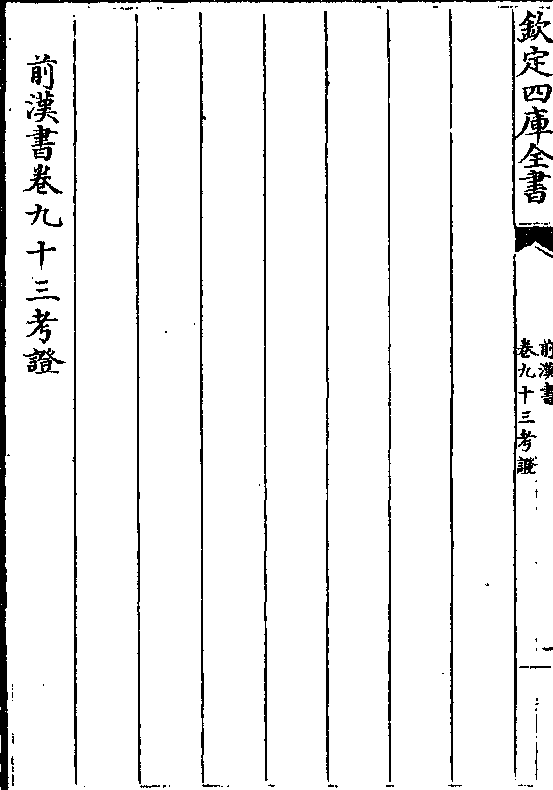 欽定四庫全書
前漢書
卷九十三考證
前漢書卷九十三考證